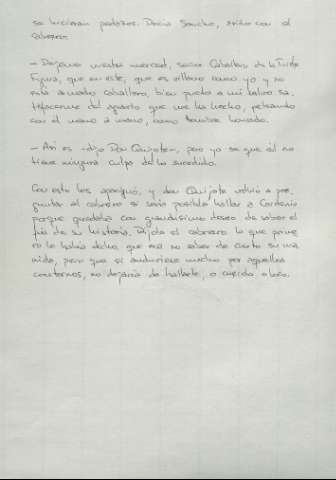 se hicieran pedazos. Decía Sancho, asido con el
cabrero:
- Déjeme vuestra merced, señor Caballero de la Triste
Figura, que en este, que es villano como yo y no
está armado caballero, bien puedo a mi salvo sa-
tisfacerme del agravio que me ha hecho, peleando
con él mano a mano, como hombre honrado.
- Así es -dijo Don Quijote-, pero yo sé que él no
tiene ninguna culpa de lo sucedido.
Con esto los apaciguó, y don Quijote volvió a pre-
guntar al cabrero si sería posible hallar a Cardenio
porque quedaba con grandísimo deseo de saber el
fin de su historia. Díjole el cabrero lo que prime-
ro le había dicho, que era no saber de cierto su ma-
nida, pero que si anduviese mucho por aquellos
contornos, no dejaría de hallarle, o cuerdo o loco.